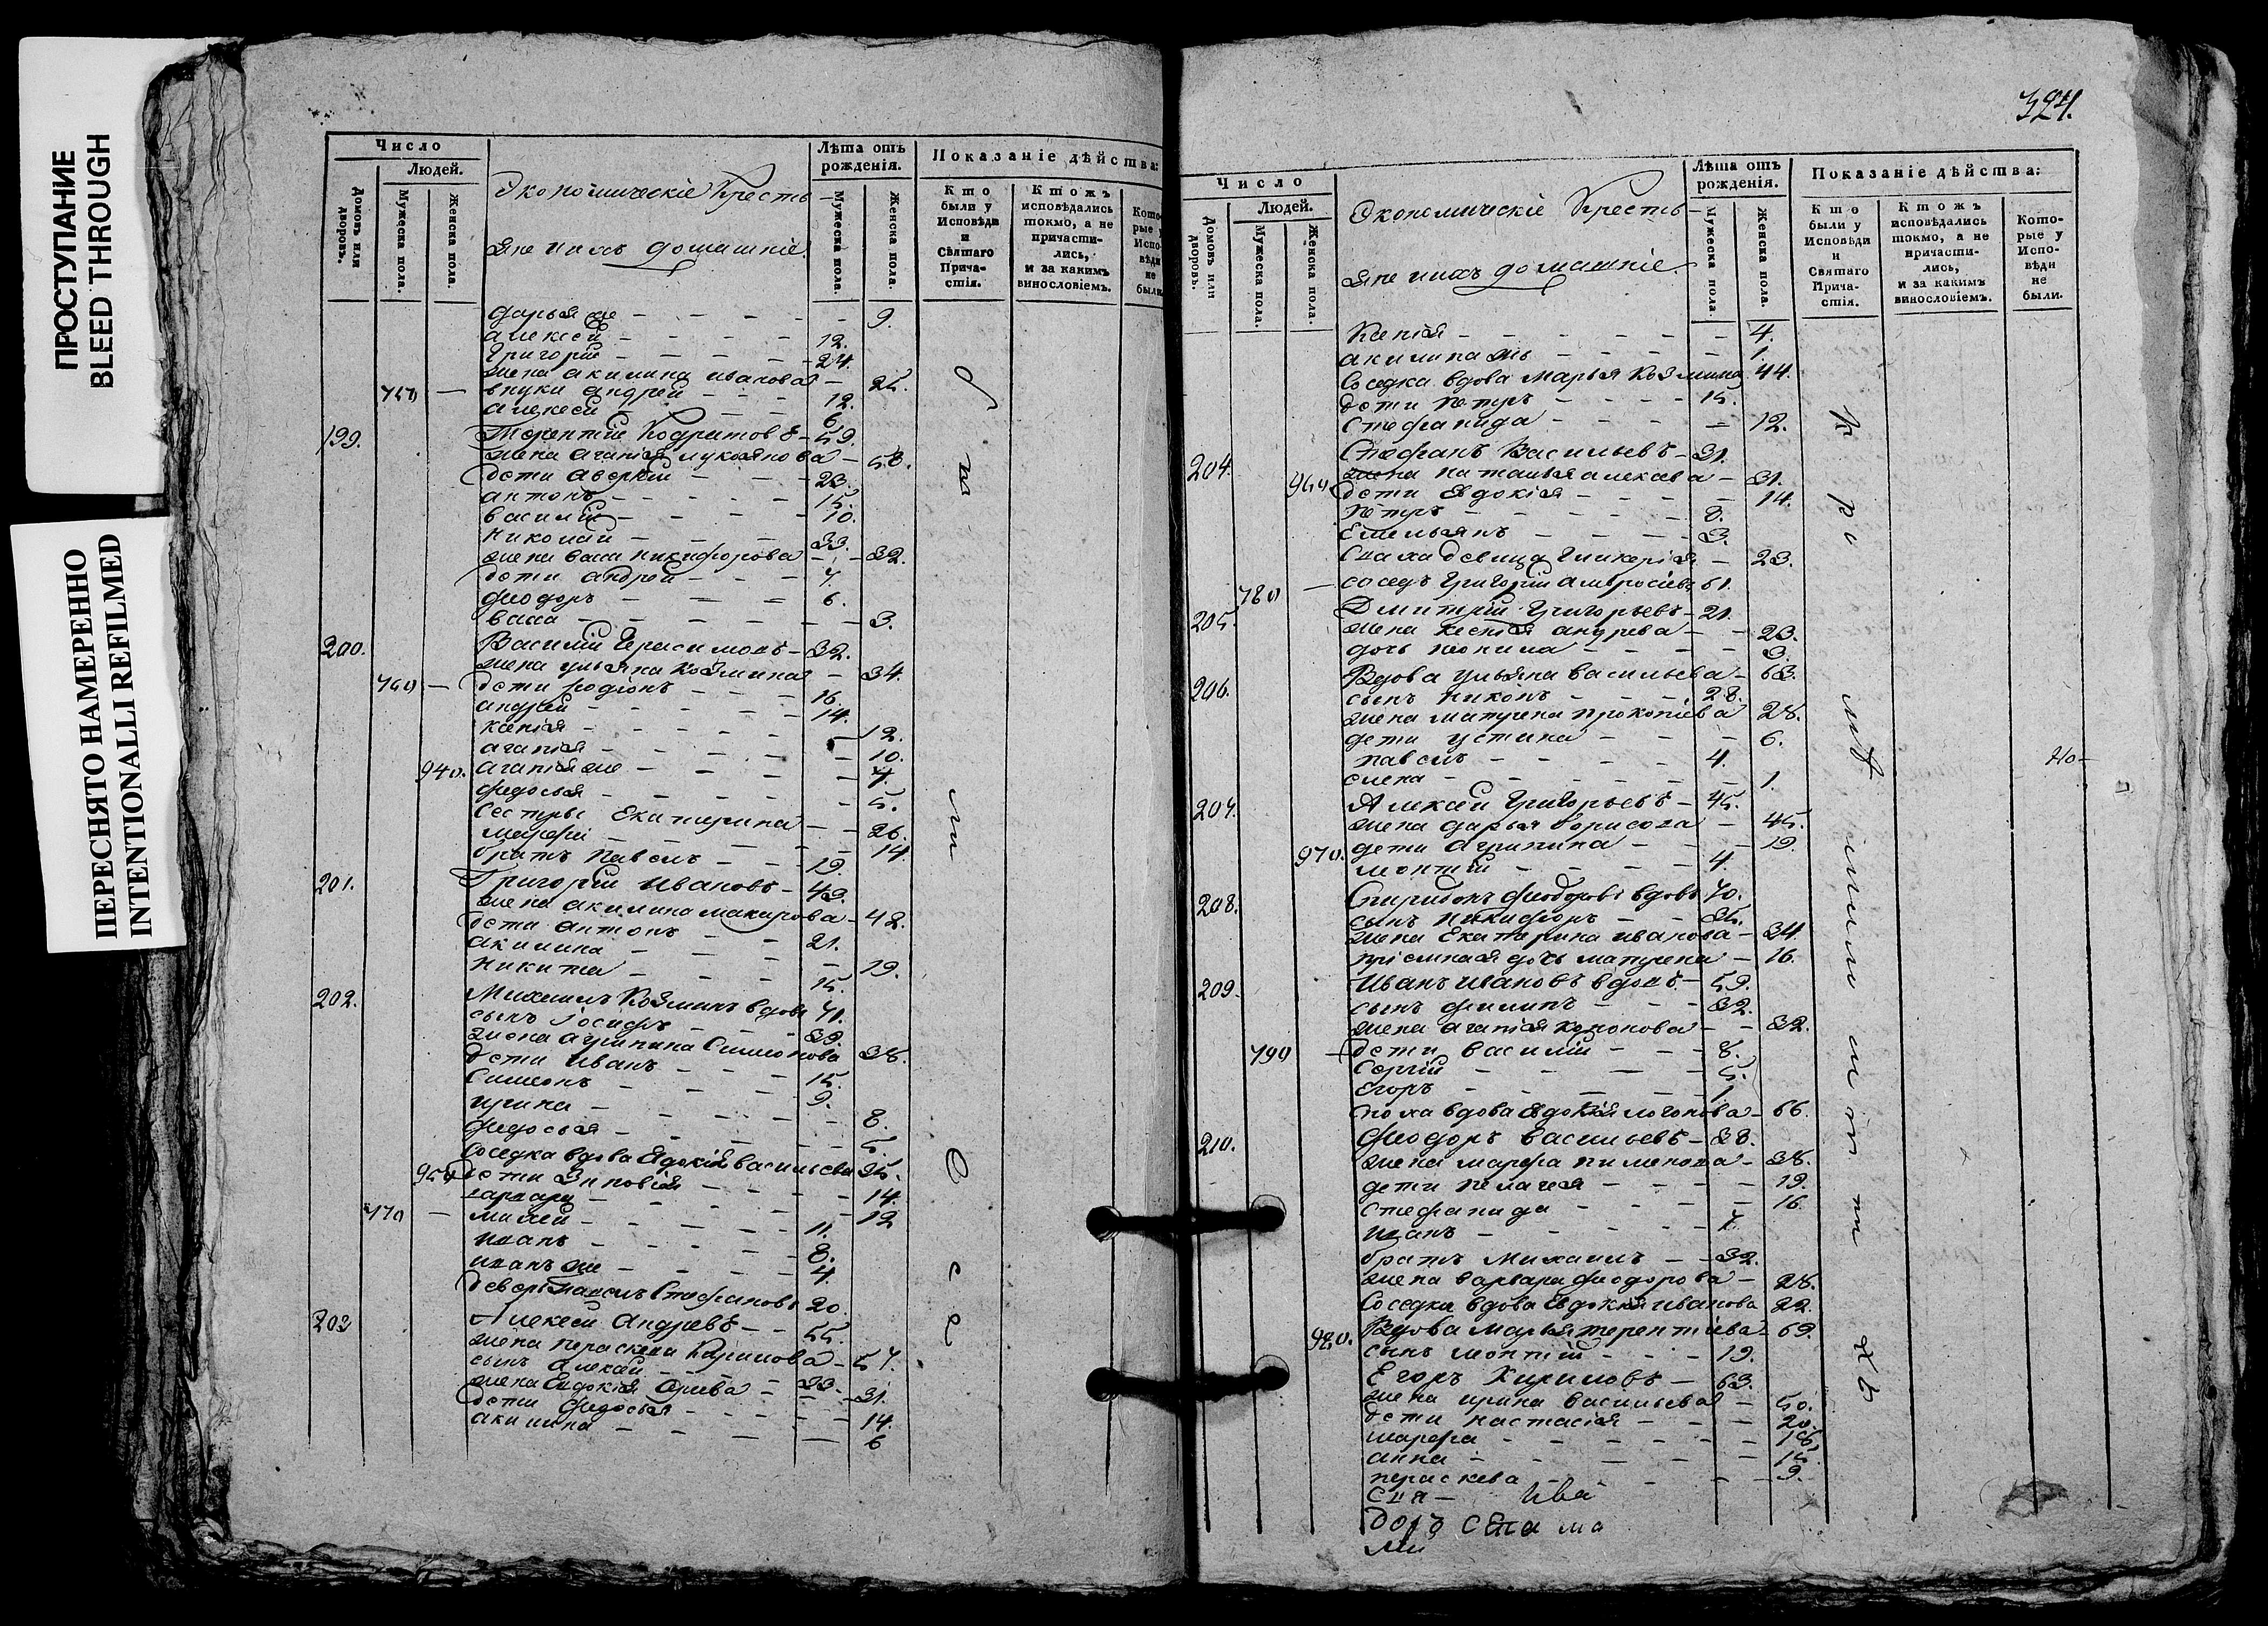 ПРОСТУПАНИЕ
BLEED THROUGH
ПЕРЕСНЯТО НАМЕРЕННО
INTENTIONALLI REFILMED
Число
Людей.
Домовъ или дворовъ.
Мужеска пола.
Женска пола.
Экономическіе Кресть-
яне и ихъ домашніе.
Лѣта отъ рожденія.
Мужеска пола.
Женска пола.
Показаніе дѣйства:
Кто были у Исповѣди и Святаго Прича-стія.
Ктожъ исповѣдались токмо, а не причасти-лись, и за какимъ винословіемъ.
Дарья же 9.
Алексей 12.
Григорій 24.
жена Акилина Иванова 25.
750 внуки Андрей 12.
Алексей 6.
199. Терентій Кодратовъ 59.
жена Агапія Лукоянова 58.
дети Аверкій 23.
Антонъ 15.
Василій 10.
Николай 33.
жена Васса Никифорова 32.
дети Андрей 7.
Феодоръ 6.
Васса 3.
200. Василій Герасимовъ 32.
жена Ульяна Козмина 34.
760 дети Родіонъ 16.
Андрей 14.
Ксенія 12.
Агапія 10.
940. Агапія же 7.
Федосья 5.
Сестры Екатерина 26.
Марфа 14
братъ Павелъ 19.
201. Григорій Ивановъ 43.
жена Акилина Макарова 42.
дети Антонъ 21.
Акилина 19.
Никита 15.
202. Михаилъ Козминъ вдовъ 71.
сынъ Іосифъ 39.
жена Агрипина Симонова 38.
дети Иванъ 15.
Симеонъ 9.
Ирина 8.
Федосья 5.
Соседка вдова Евдокія Васильева 35.
950 дети Зиновія 14.
Варвара 12
770 11.
Иванъ 8.
Иванъ же 4.
деверь Павелъ Стефановъ 20.
203 Алексей Андревъ 55.
жена Параскева Карпова 57.
сынъ Алексей 33.
жена Евдокія 31.
дети Федосья 14.
Акилина 6
324.
Число
Людей.
Домовъ или дворовъ.
Мужеска пола.
Женска пола.
Экономическіе Кресть-
яне и ихъ домашніе.
Лѣта отъ рожденія.
Мужеска пола.
Женска пола.
Показаніе дѣйства:
Кто были у Исповѣди и Святаго Прича-стія.
Ктожъ исповѣдались токмо, а не причасти-лись, и за какимъ винословіемъ.
Кото-рые у Испо-вѣди не были.
Ксенія 4.
Акилина жъ 1.
Соседка вдова Марья Козмина 44.
дети Петръ 15.
Стефанида 12.
204. Стефанъ Васильевъ 31.
жена Наталья Алексева 31.
960 дети Евдокія 14.
Петръ 8.
Емельянъ 3.
девица Гликерія 23.
780 соседъ Григорій Амвросіевъ 61.
205. Дмитрій Григорьевъ 21.
жена Ксенія Андрева 23.
дочь 3.
206. Вдова Ульяна Васильева 63.
сынъ Никонъ 28.
жена Матрена Прокопіева 28.
дети Устина 6.
Павелъ 4.
Елена 1.
207. Алексей Григорьевъ 45.
жена Дарья Борисова 45.
970. дети Агрипина 19.
Леонтій 4.
208. Спиридонъ Феодоровъ вдовъ 70.
сынъ Никифоръ 35.
жена Екатерина Иванова 34.
пріемная дочь Матрена 16.
209. Иванъ Ивановъ вдовъ 59.
сынъ Филипъ 32.
жена Агапія Кононова 32.
790 дети Василій 8.
Сергій 5.
Егоръ 1.
вдова Евдокія 66.
210. Феодоръ Васильевъ 38.
жена Марфа Пименова 38.
дети Пелагея 19.
Стефанида 16.
Иванъ 7.
братъ Михаилъ 32.
жена Варвара Феодорова 28.
Соседка вдова Евдокія Иванова 22.
980. Вдова Марья Терентіева 69.
сынъ Леонтій 19.
Егоръ Кириловъ 63.
жена Ирина Васильева 50.
дети Настасія 20.
Марфа 18.
Анна 15.
Параскева 9.
Ива
доръ
ми